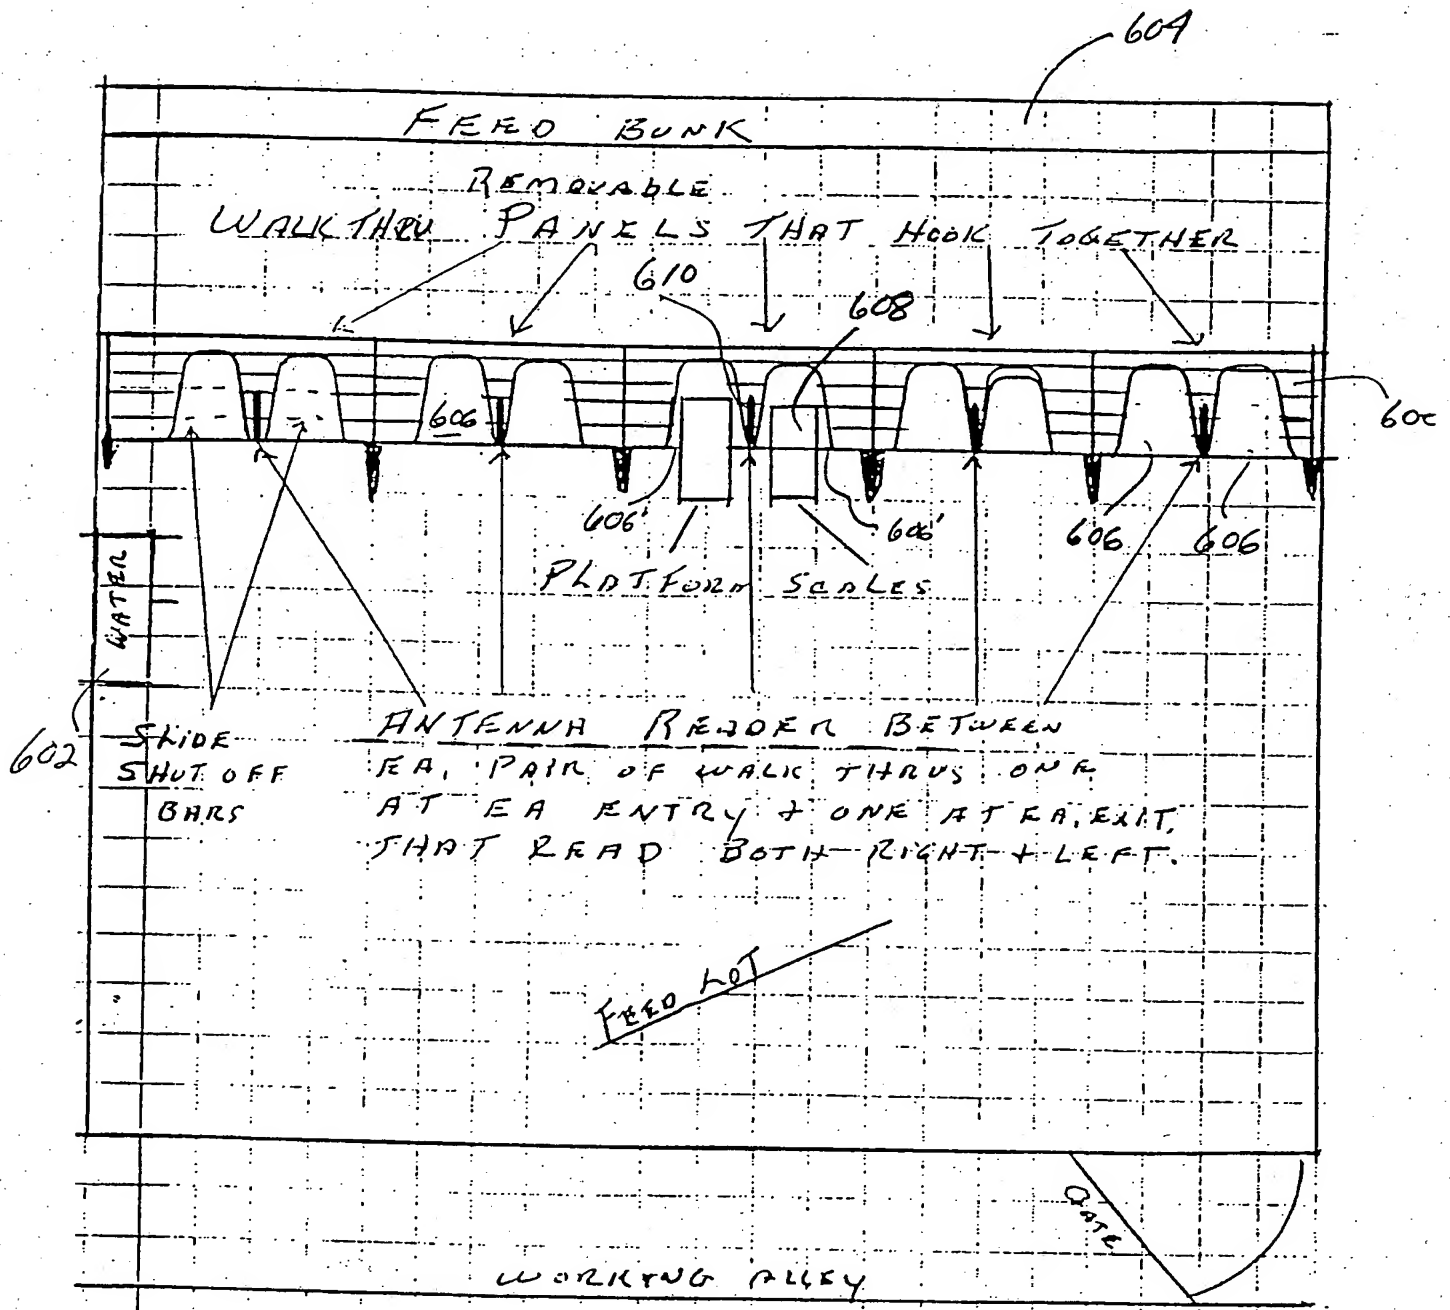 604
FEED BUNK
REMOVABLE
WALK THRU PANELS THAT HOOK TOGETHER
610
608
606
606'
606'
606
606
PLATFORM SCALES
WATER
602
SLIDE
SHUT OFF
BARS
ANTENNA READER BETWEEN
EA. PAIR OF WALK THRUS ONE
AT EA ENTRY + ONE AT EA. EXIT.
THAT READ BOTH RIGHT + LEFT.
FEED LOT
GATE
WORKING ALLEY